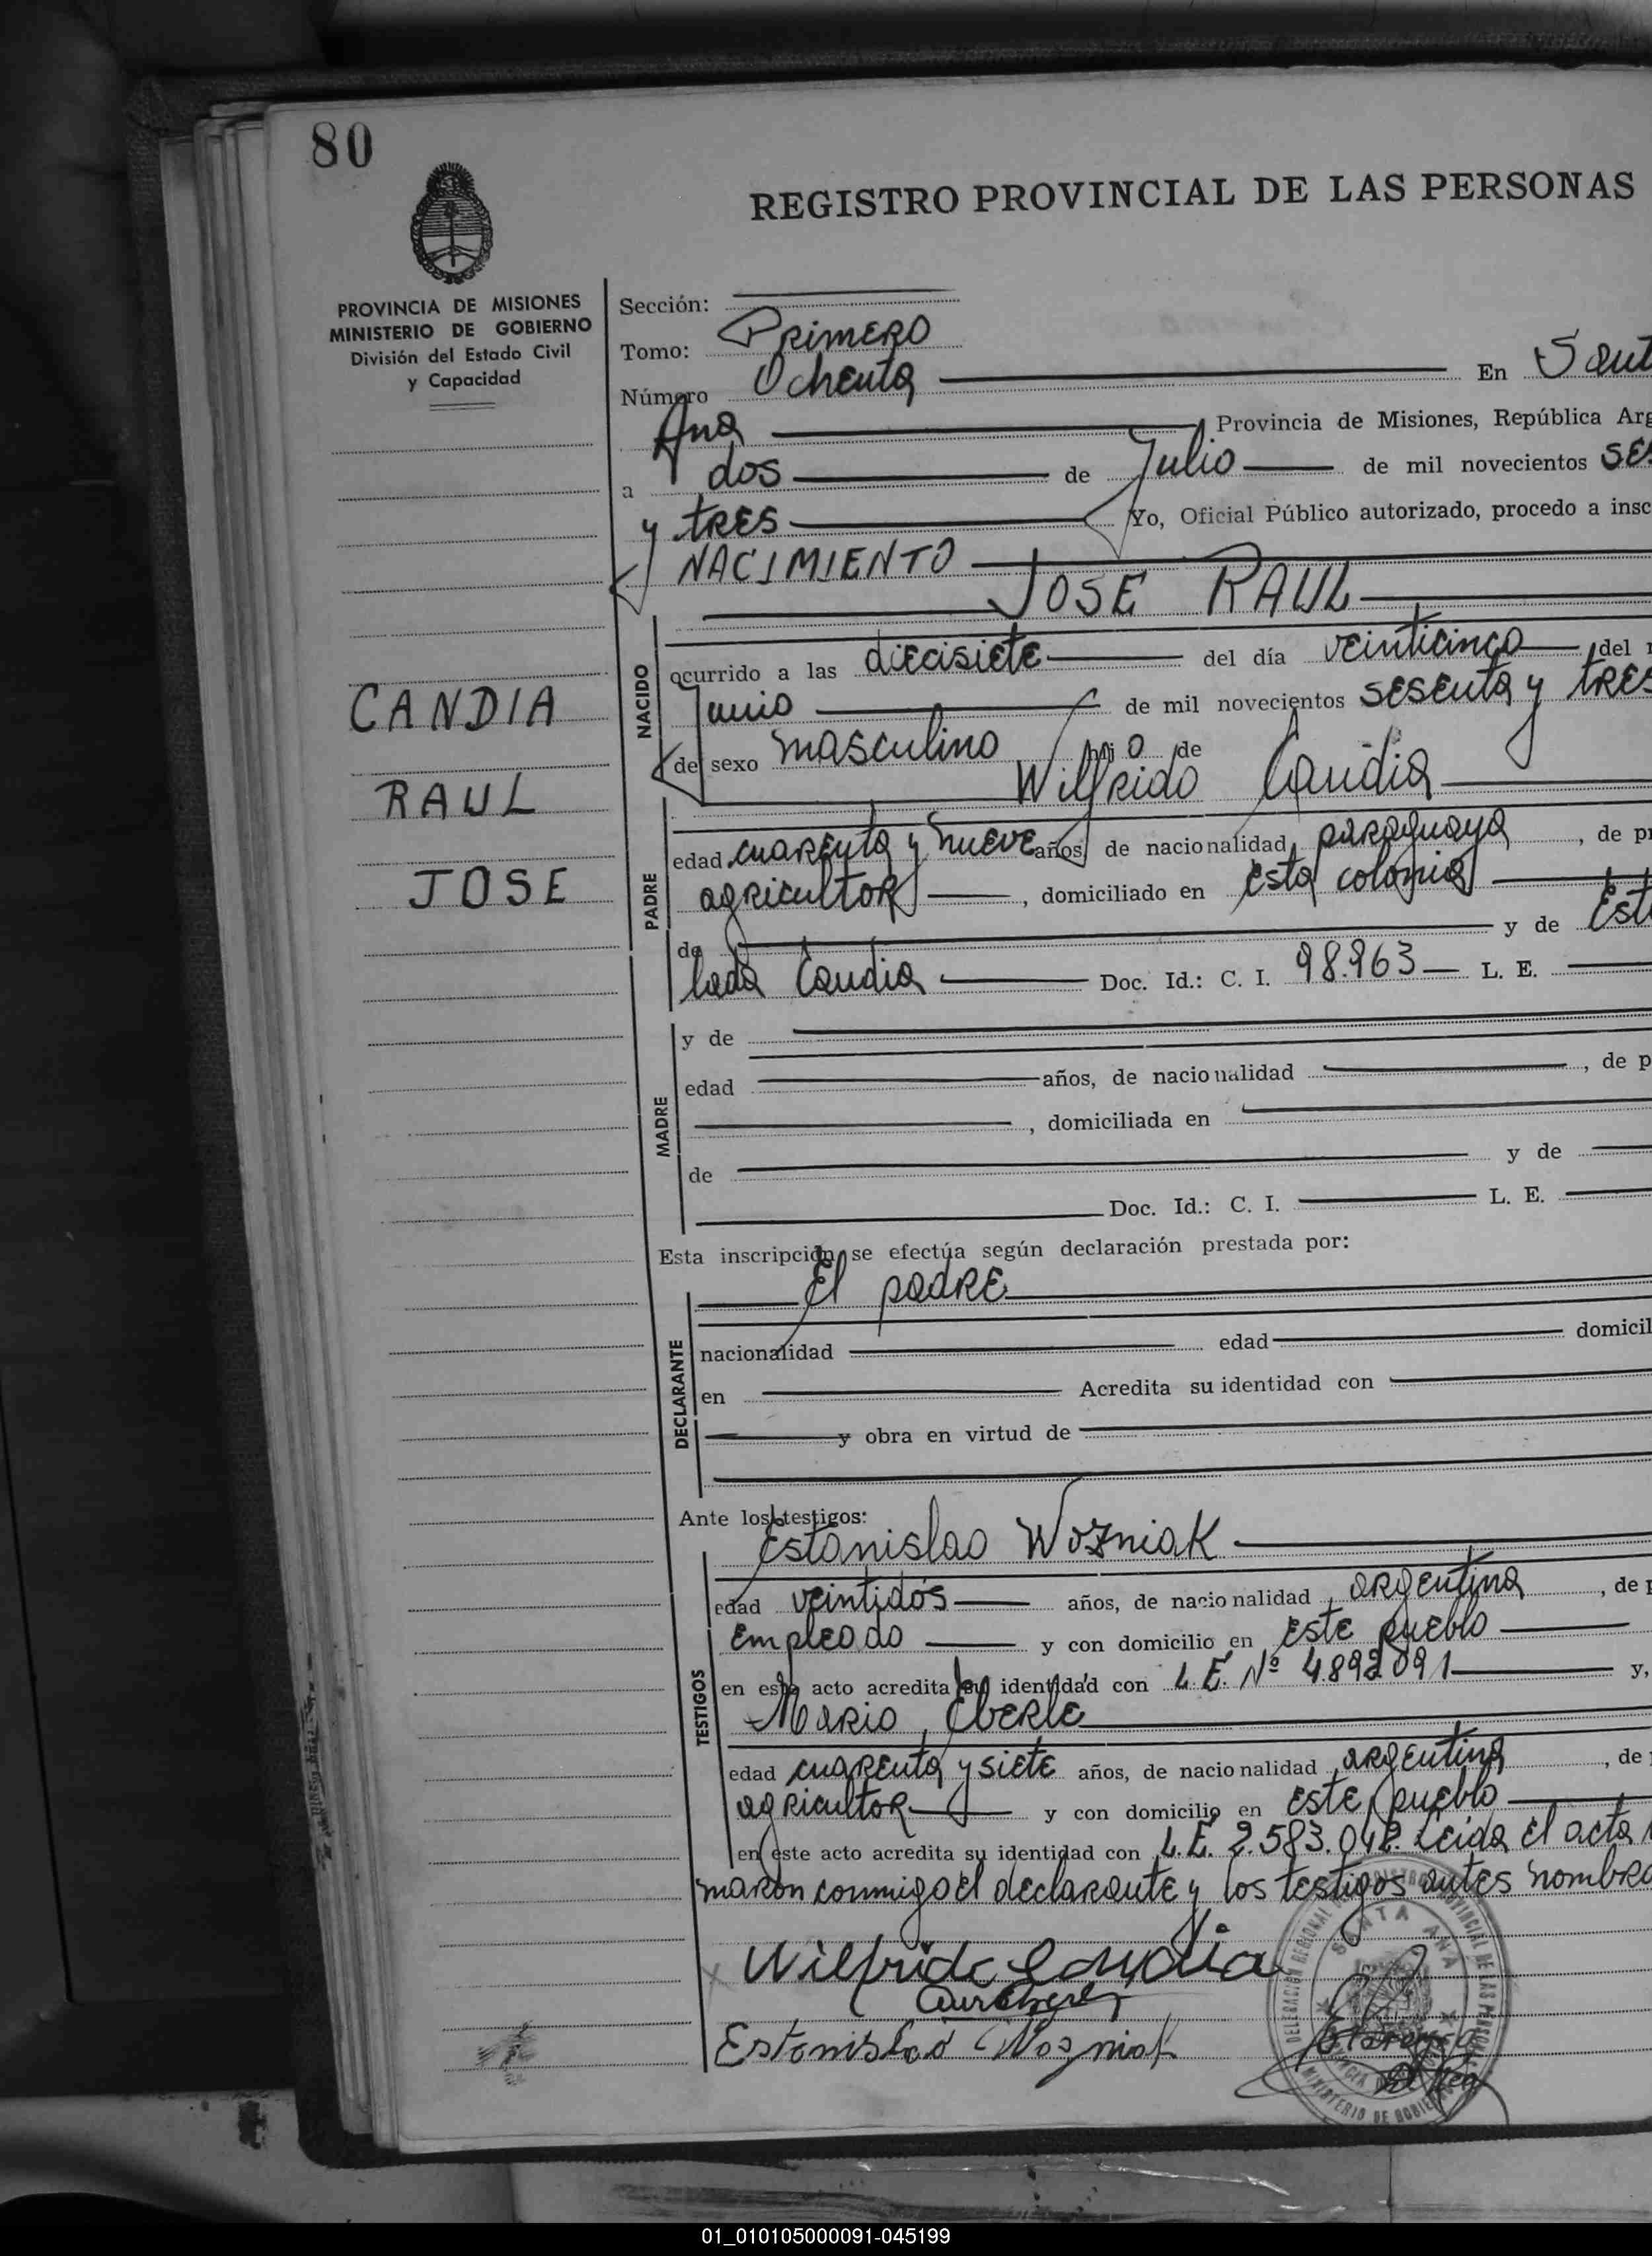 80
REGISTRO PROVINCIAL DE LAS PERSONAS
PROVINCIA DE MISIONES
MINISTERIO DE GOBIERNO
División del Estado Civil
y Capacidad
CANDIA
RAUL
JOSE
Sección:
Tomo: Primero
Número Ochenta En Sant
Ana Provincia de Misiones, República Arg
a dos de Julio de mil novecientos ses
y tres Yo, Oficial Público autorizado, procedo a insc
NACIMIENTO
JOSE RAUL
NACIDO
ocurrido a las diecisiete del día veinticinco del
Junio de mil novecientos sesenta y tres
de sexo masculino hijo de
Wilfrido Candia
PADRE
edad cuarenta y nueve años, de nacionalidad paraguaya, de pr
agricultor, domiciliado en esta colonia
de y de Est
lada Candia Doc. Id.: C. I. 98.963 L. E.
MADRE
y de
edad años, de nacionalidad, de p
, domiciliada en
de y de
Doc. Id.: C. I. L. E.
Esta inscripción se efectúa según declaración prestada por:
El padre
DECLARANTE
nacionalidad edad domicil
en Acredita su identidad con
y obra en virtud de
Ante los testigos:
Estanislao Wozniak
TESTIGOS
edad veintidós años, de nacionalidad argentina, de p
empleado y con domicilio en este pueblo
en este acto acredita su identidad con L.E. Nº 4.892.091 y,
Mario Eberle
edad cuarenta y siete años, de nacionalidad argentina, de
agricultor y con domicilio en este pueblo
en este acto acredita su identidad con L.E. 2.583.042. Leida el acta
maron conmigo el declarante y los testigos antes nombra
Wilfrido Candia
Estanislao Wozniak
SANTA ANA
01_010105000091-045199